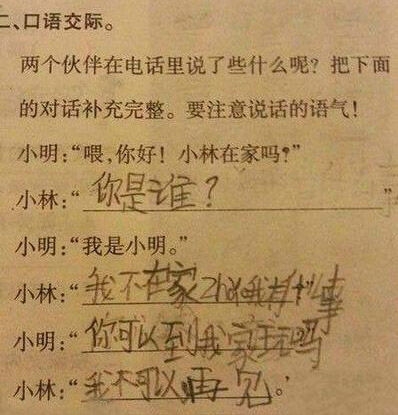 二、口语交际。
两个伙伴在电话里说了些什么呢？把下面
的对话补充完整。要注意说话的语气！
小明：“喂，你好！小林在家吗？”
小林：“你是谁？”
小明：“我是小明。”
小林：“我不在家 我有什事
小明：“你可以到我家玩吗
小林：“我不可以再见。”